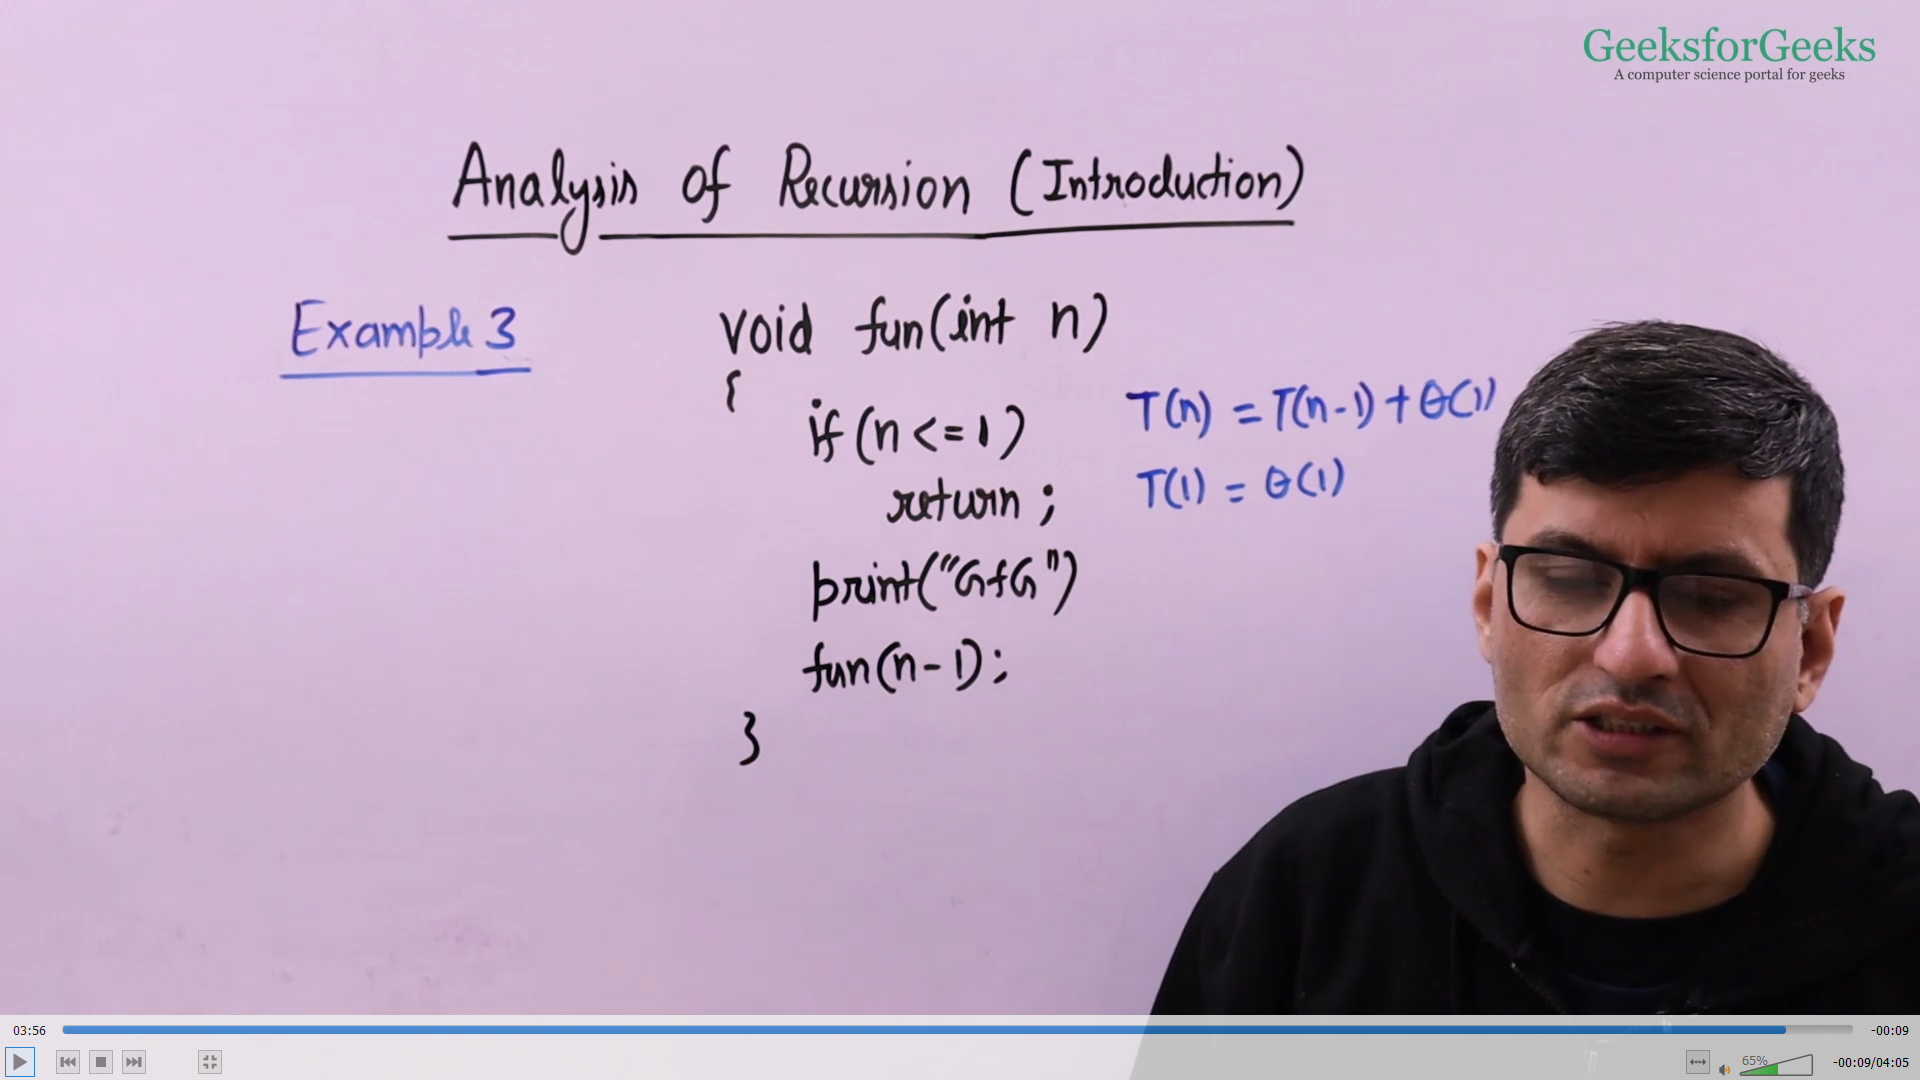 GeeksforGeeks
A computer science portal for geeks
Analysis of Recursion (Introduction)
Example 3
void fun(int n)
{
if (n <= 1)
return ;
print("GfG")
fun(n-1);
}
T(n) = T(n-1) + θ(1)
T(1) = θ(1)
03:56
-00:09
65%
-00:09/04:05